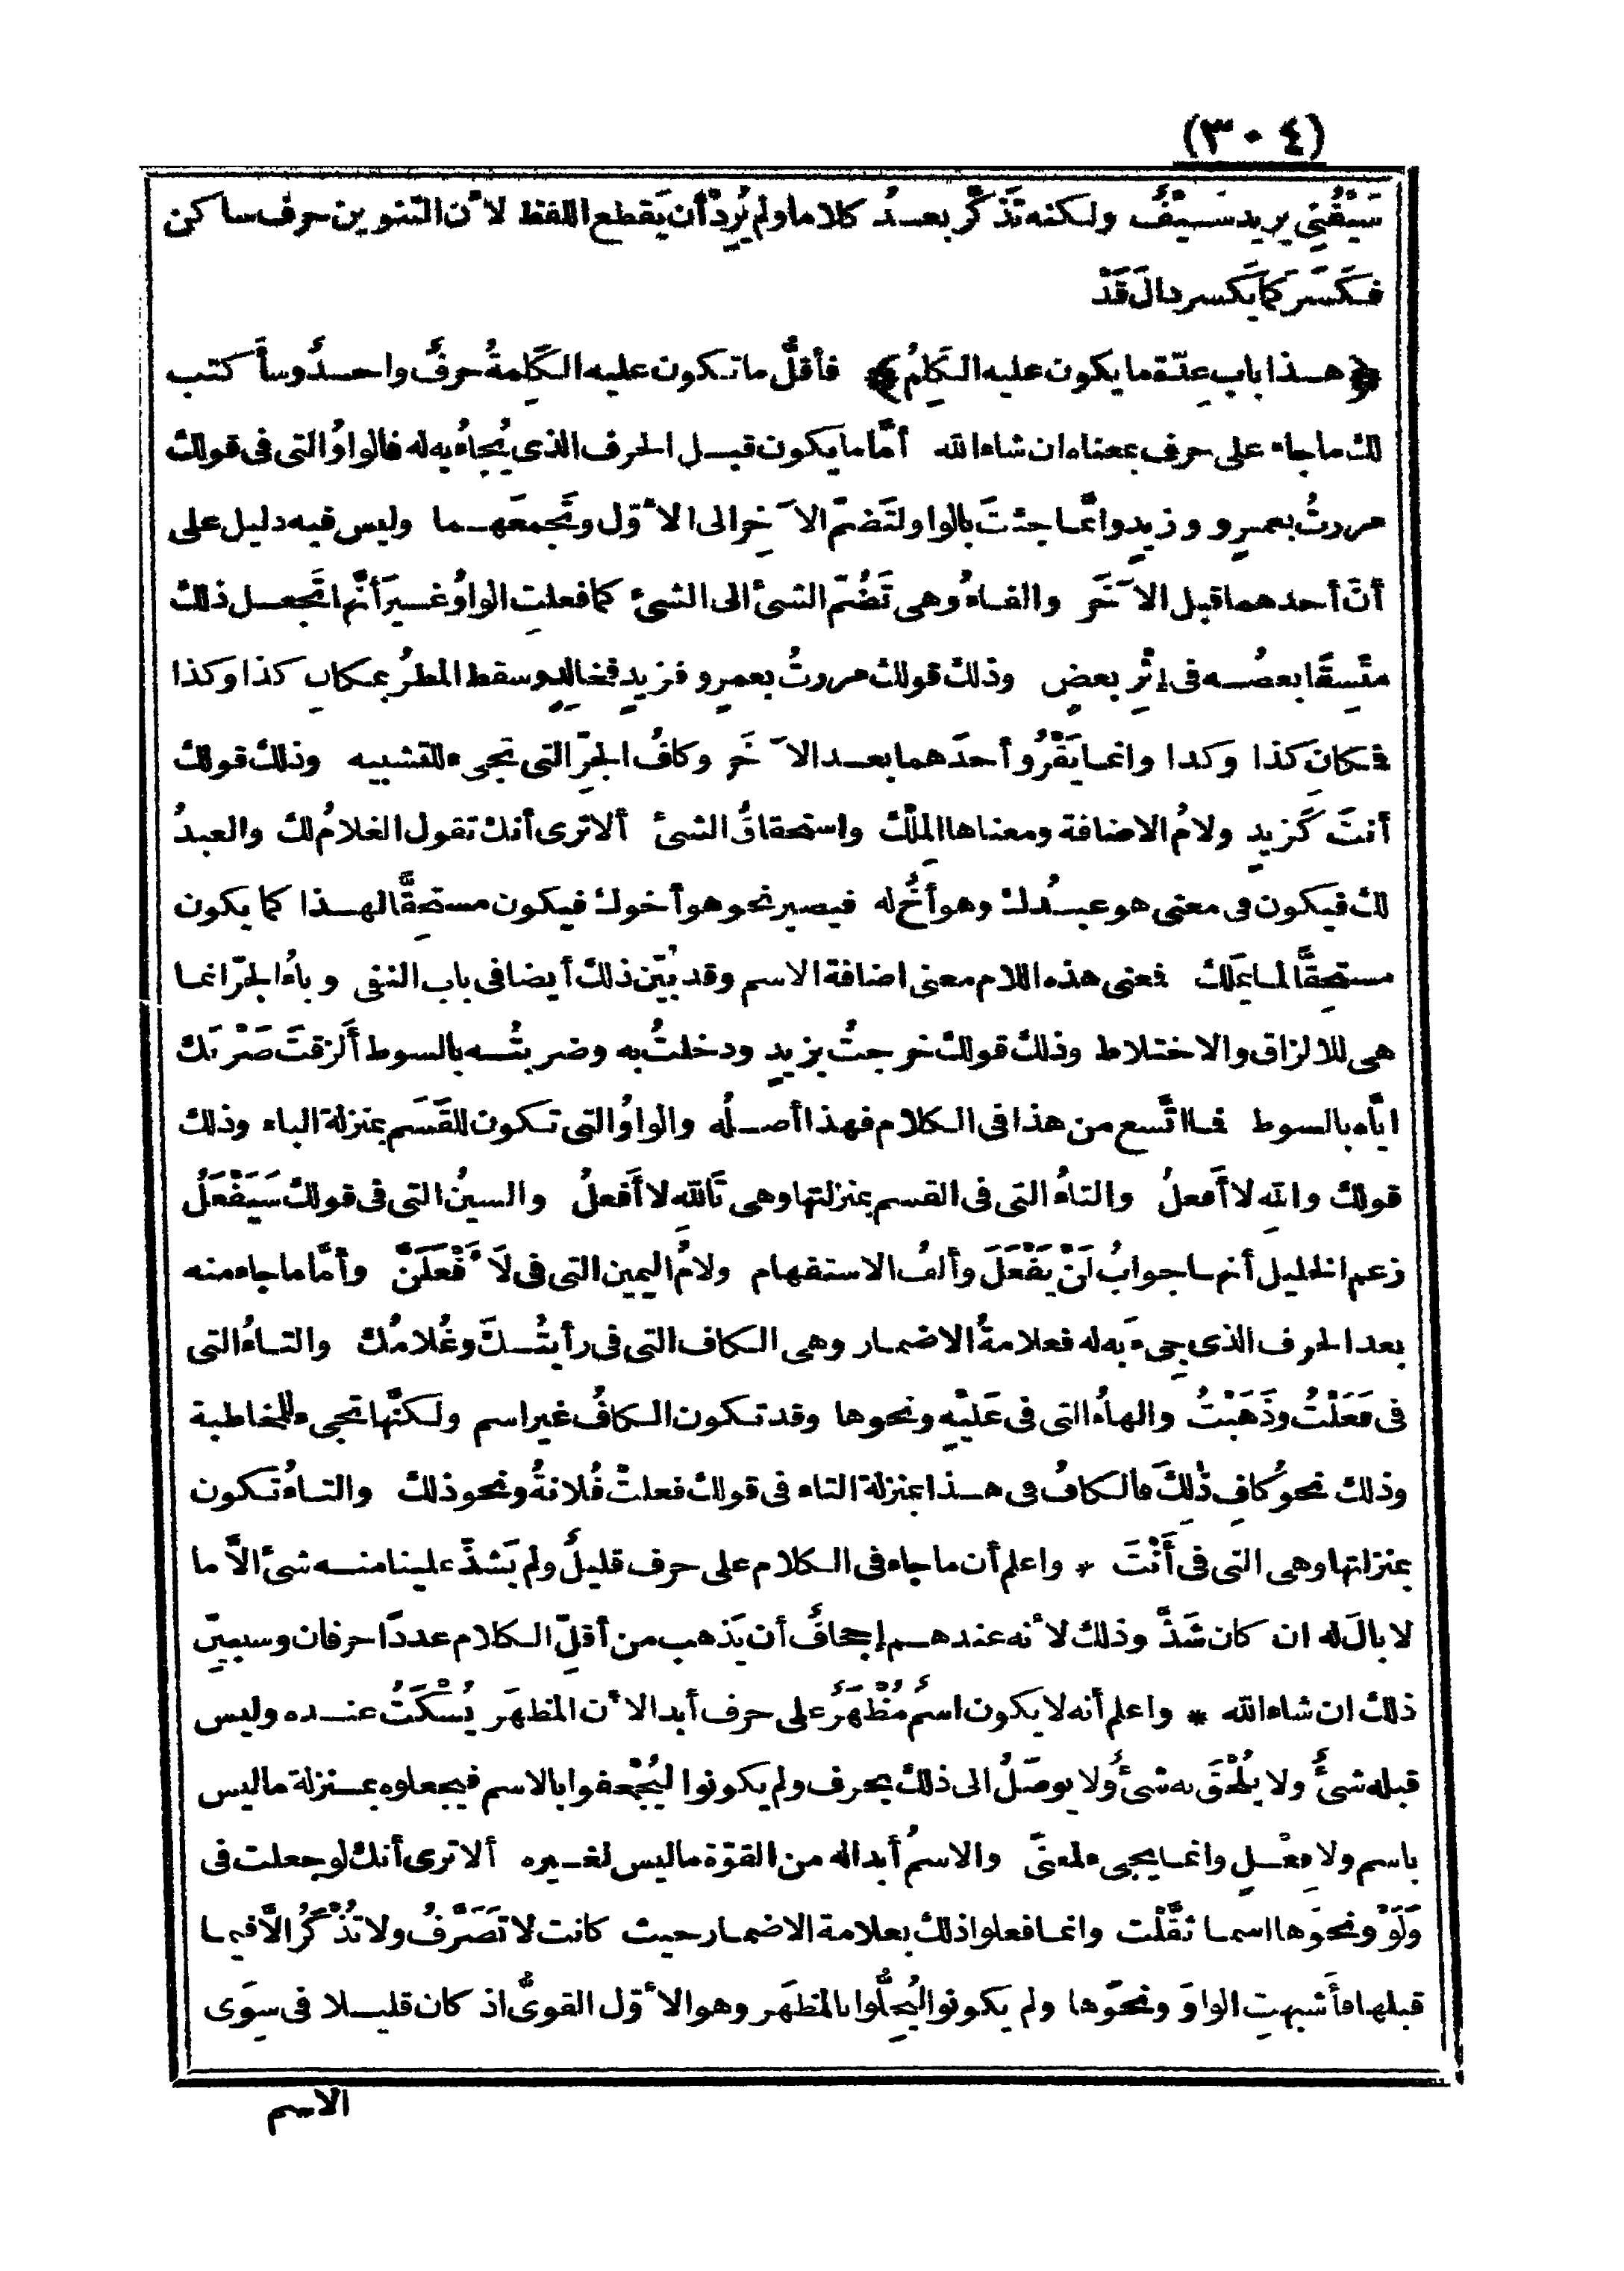 (٣٠٤)
سَيْفُنِي يريد سَيْفٌ ولكنه تَذَكَّر بعدُ كلاما ولم يُرِدْ أن يَقطع اللفظ لأن التنوين حرف ساكن
فكَسَرَ كما يَكسر دالَ قَدْ
﴿هذا باب عِدّة ما يكون عليه الكَلِمُ﴾ فأقلُّ ما تكون عليه الكَلِمةُ حرفٌ واحدٌ وسأكتب
لك ما جاء على حرف بمعناه ان شاء الله أمّا ما يكون قبل الحرف الذي يُجاءُ به له فالواوُ التي في قولك
مررتُ بعمرٍو وزيدٍ وانّما جئتَ بالواو لتَضمّ الآخِر الى الأوّل وتَجمعَهما وليس فيه دليل على
أنّ أحدهما قبل الآخَر والفاءُ وهي تَضُمّ الشئ الى الشئ كما فعلتِ الواوُ غيرَ أنّها تَجعل ذلك
متّسِقًا بعضُه في إثْرِ بعضٍ وذلك قولك مررتُ بعمرٍو فزيدٍ فخالدٍ وسقط المطرُ بمكانِ كذا وكذا
فمكانِ كذا وكذا وانما يَقْرُو أحدَهما بعد الآخَر وكافُ الجرّ التي تجىء للتشبيه وذلك قولك
أنتَ كَزيدٍ ولامُ الاضافة ومعناها المِلْك واستحقاقُ الشئ ألا ترى أنك تقول الغلامُ لك والعبدُ
لك فيكون في معنى هو عبدُك وهو أخٌ له فيصير نحو هو أخوك فيكون مستحِقًّا لهذا كما يكون
مستحِقًّا لما يَملك فمعنى هذه اللام معنى اضافة الاسم وقد بُيّن ذلك أيضا في باب النفي وباءُ الجرّ انما
هي للالزاق والاختلاط وذلك قولك خرجتُ بزيدٍ ودخلتُ به وضربتُه بالسوط أَلزقتَ ضَرْبَك
ايّاه بالسوط فما اتّسع من هذا في الكلام فهذا أصلُه والواوُ التي تكون للقَسَم بمنزلة الباء وذلك
قولك واللهِ لا أَفعلُ والتاءُ التي في القسم بمنزلتها وهي تَالله لا أَفعلُ والسينُ التي في قولك سَيَفْعَلُ
زعم الخليل أنها جوابُ لَنْ يَفْعَلَ وألفُ الاستفهام ولامُ اليمين التي في لَأَفْعَلَنَّ وأمّا ما جاء منه
بعد الحرف الذي جِىءَ به له فعلامةُ الاضمار وهي الكاف التي في رأيتُكَ وغُلامُك والتاءُ التي
في فَعَلْتُ وذَهَبْتُ والهاءُ التي في عَلَيْهِ ونحوها وقد تكون الكافُ غير اسم ولكنّها تجىء للمخاطبة
وذلك نحوُ كافِ ذٰلِكَ فالكافُ في هذا بمنزلة التاء في قولك فعلتْ فُلانةُ ونحو ذلك والتاءُ تكون
بمنزلتها وهي التي في أَنْتَ * واعلم أن ما جاء في الكلام على حرف قليلٌ ولم يَشذّ علينا منه شئ الاّ ما
لا بالَ له ان كان شَذَّ وذلك لأنه عندهم إجحافٌ أن يَذهب من أقلِّ الكلام عددًا حرفان وسنبيّنِ
ذلك ان شاء الله * واعلم أنه لا يكون اسمٌ مُظْهَرٌ على حرف أبدا لأن المظهَر يُسْكَتُ عنده وليس
قبله شئٌ ولا يُلْحَق به شئٌ ولا يوصَلُ الى ذلك بحرف ولم يكونوا ليُجْحفوا بالاسم فيجعلوه بمنزلة ما ليس
باسم ولا فِعْلٍ وانما يجىء لمعنًى والاسمُ أبدا له من القوّة ما ليس لغيره ألا ترى أنك لو جعلت في
وَلَوْ ونحوَها اسما ثقّلْت وانما فعلوا ذلك بعلامة الاضمار حيث كانت لا تَصَرَّفُ ولا تُذْكَرُ الاّ فيما
قبلها فأَشبهتِ الواوَ ونحوَها ولم يكونوا ليُخِلُّوا بالمظهَر وهو الأوّل القوىُّ اذ كان قليلا في سِوَى
الاسم